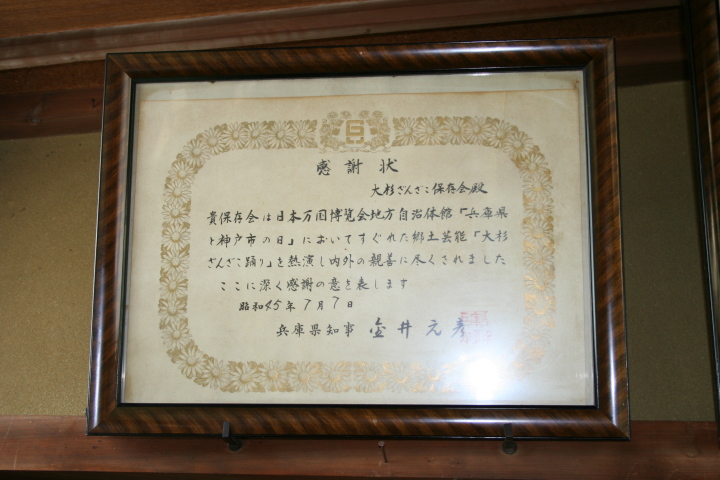 感謝状
大杉ざんざこ保存会殿
貴保存会は日本万国博覧会地方自治体館「兵庫県
ト神戸市の日」においてすぐれた郷土芸能「大杉
ざんざこ踊り」を熱演し内外の親善に尽くされました
ここに深く感謝の意を表します
昭和45年7月7日
兵庫県知事 金井元彦